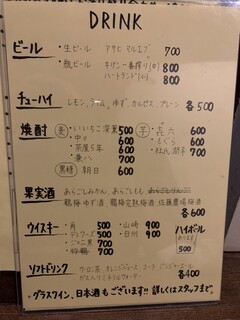 DRINK
ビール ・生ビール アサヒ マルエフ 700
・瓶ビール キリン一番搾り(中) 800
ハートランド(中) 800
チューハイ レモン、 ゆず、カルピス、プレーン 各500
焼酎 麦 ・いいちこ深薫 500 芋 ・㐂六 600
・中々 600 ・もぐら 600
・茶屋5年 600 ・ 600
・兼八 700
黒糖 朝日 600
果実酒 あらごしみかん、あらごしもも
鶴梅ゆず酒、鶴梅完熟梅酒、佐藤農場梅酒
各600
ウイスキー ・角 500 ・山崎 900 ハイボール
・デュワーズ 500 ・白州 900
・ジャニ黒 700 500
700
ソフトドリンク ウーロン茶、オレンジジュース、コーラ、ジンジャーエール 各400
グラスワイン、日本酒もございます!! 詳しくはスタッフまで。